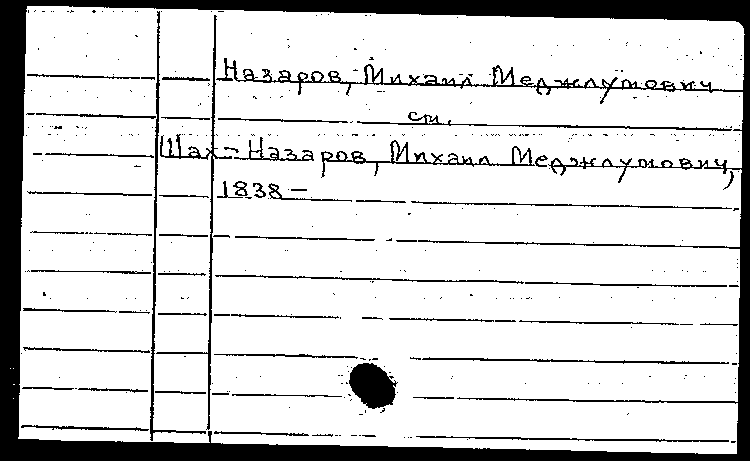 Назаров, Михаил Меджлумович
см.
Шах-Назаров, Михаил Меджлумович,
1838-